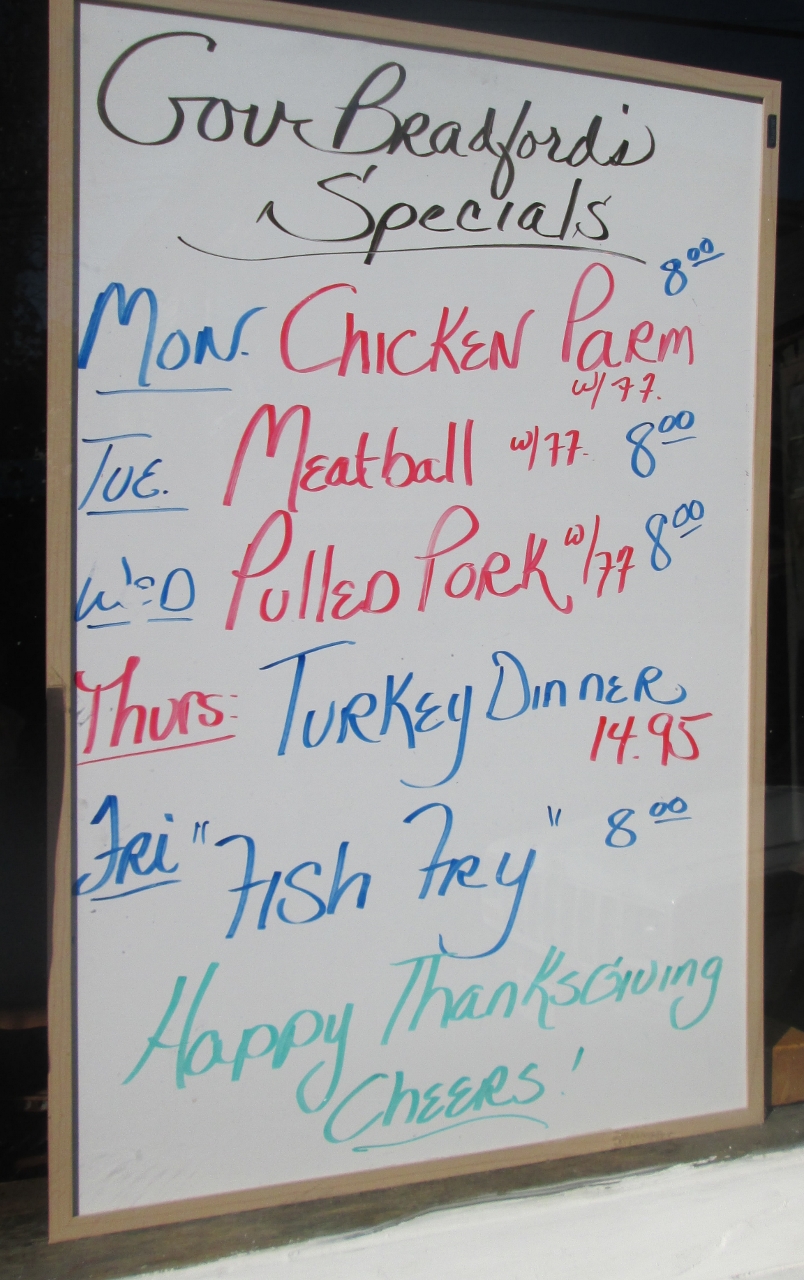 Gov Bradford's
Specials
Mon. Chicken Parm 8⁰⁰
w/ 77.
Tue. Meatball w/77. 8⁰⁰
Wed Pulled Pork w/77 8⁰⁰
Thurs: Turkey Dinner
14.95
Fri "Fish Fry" 8⁰⁰
Happy Thanksgiving
Cheers!